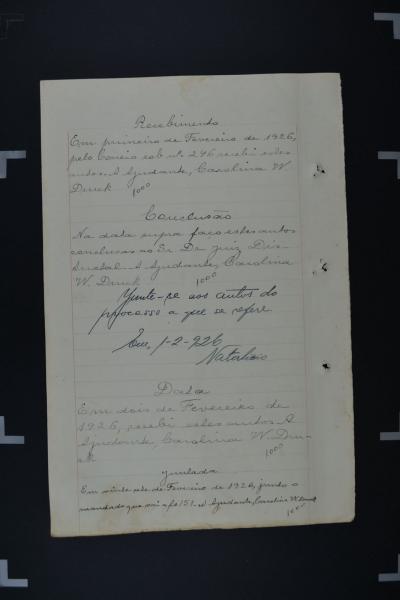 Recebimento
Em primeiro de Fevereiro de 1926,
pelo Correio sob nº 246 recebi estes
autos. A Ajudante, Carolina W.
Druck 1000
Conclusão
Na data supra faço estes autos
conclusos ao Sr. Dr. Juiz Dis-
trictal. A Ajudante, Carolina
W. Druck 1000
Junte-se aos autos do
processo a que se refere
1-2-926
Data
Em dois de Fevereiro de
1926, recebi estes autos. A
Ajudante, Carolina W. Dru-
ck 1000
Juntada
Em vinte sete de Fevereiro de 1926, junto o
mandado que vai a fs 151. A Ajudante, Carolina W. Druck
1000